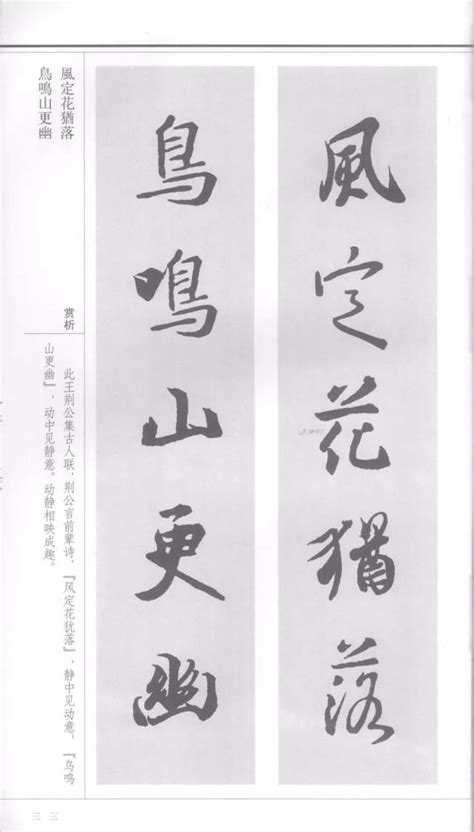 風定花猶落
鳥鳴山更幽
風定花猶落
鳥鳴山更幽
赏析
此王荆公集古人联，荆公言前辈诗，『风定花犹落』，静中见动意，『鸟鸣
山更幽』，动中见静意。动静相映成趣。
三三